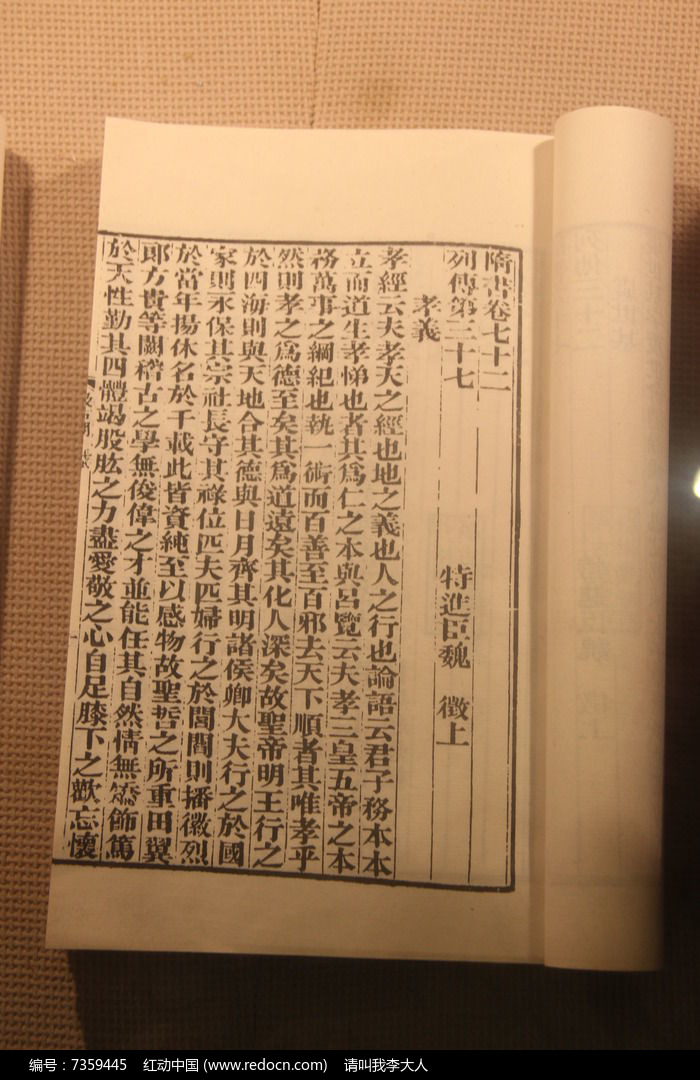 隋書卷七十二
列傳第三十七
特進臣魏 徵上
孝義
孝經云夫孝天之經也地之義也人之行也論語云君子務本本
立而道生孝悌也者其爲仁之本與呂覽云夫孝三皇五帝之本
務萬事之綱紀也執一術而百善至百邪去天下順者其唯孝乎
然則孝之爲德至矣其爲道遠矣其化人深矣故聖帝明王行之
於四海則與天地合其德與日月齊其明諸侯卿大夫行之於國
家則永保其宗社長守其祿位匹夫匹婦行之於閭閻則播徽烈
於當年揚休名於千載此皆資純至以感物故聖哲之所重田翼
郎方貴等闕稽古之學無俊偉之才並能任其自然情無矯飾篤
於天性勤其四體竭股肱之力盡愛敬之心自足膝下之歡忘懷
编号：7359445 红动中国 (www.redocn.com) 请叫我李大人